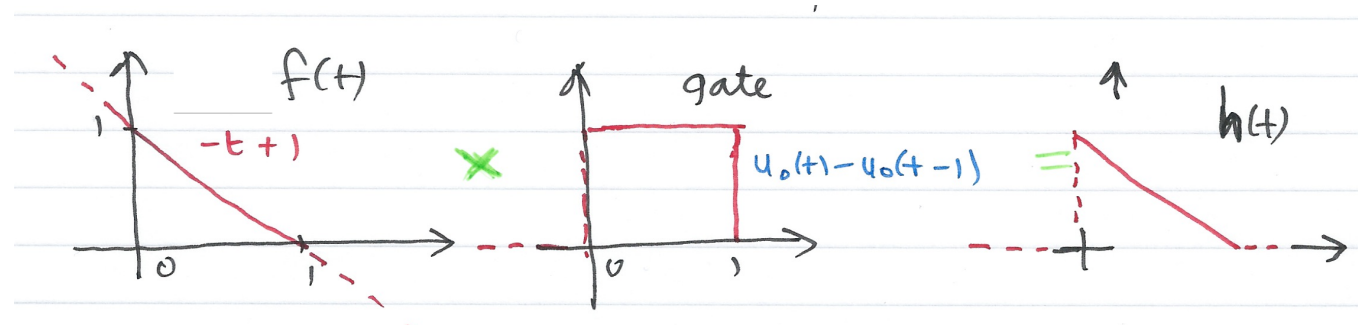 f(t)
1
-t + 1
0
1
×
gate
u₀(t) - u₀(t - 1)
0
1
=
h(t)